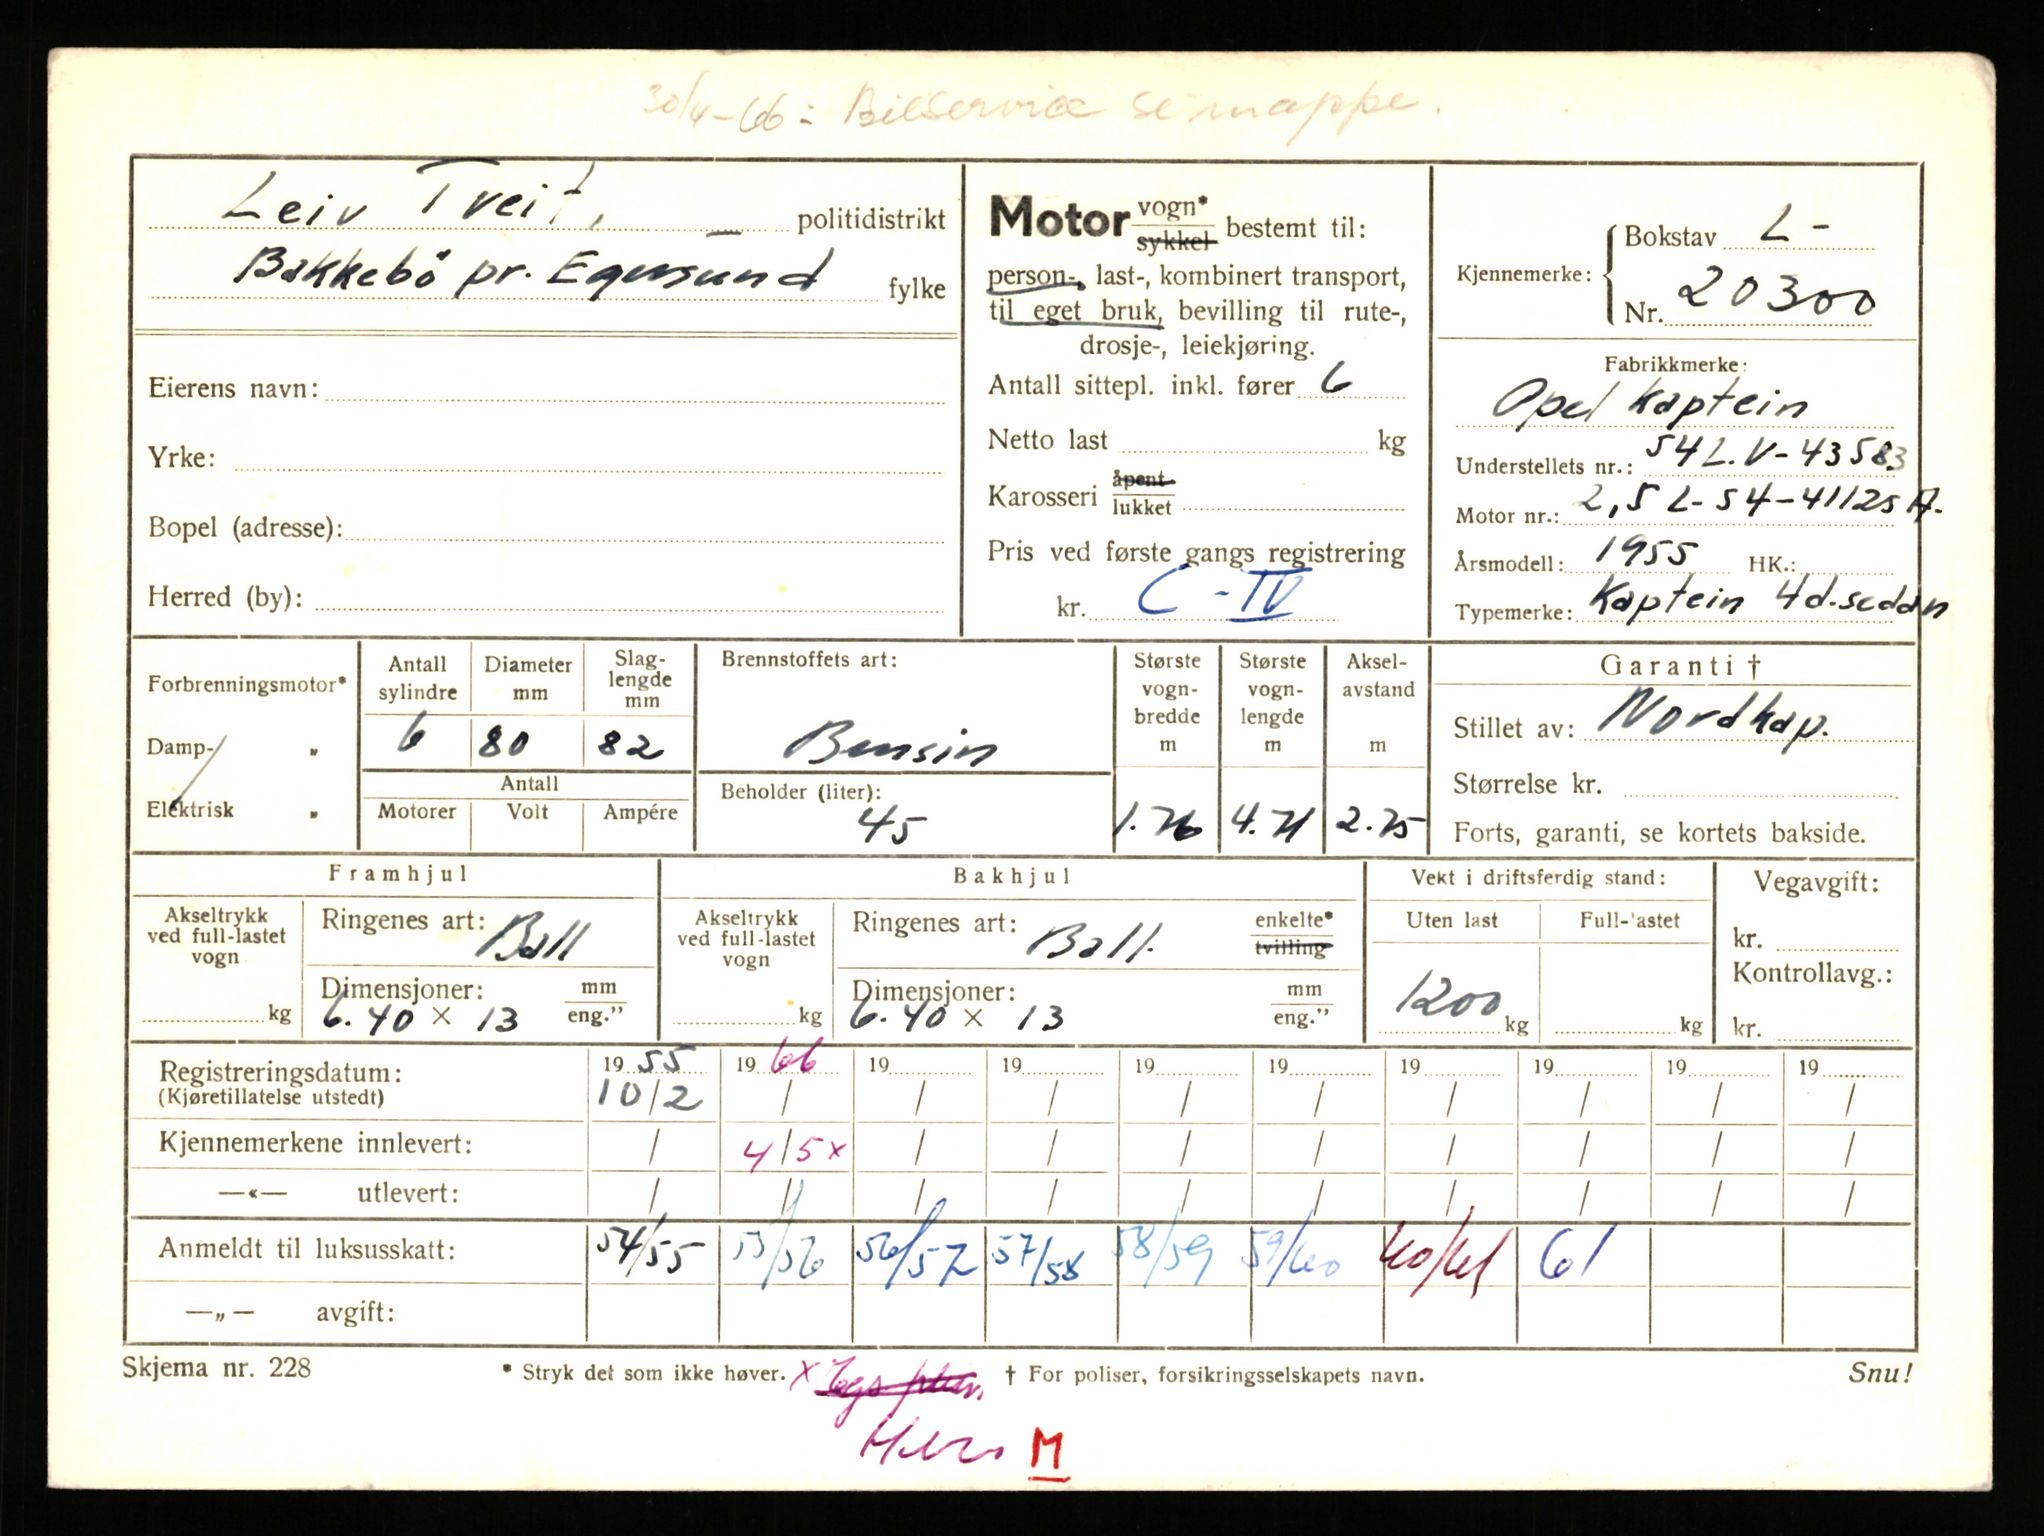 30/4-66 = Bilservice se mappe.
Leiv Tveit, politidistrikt
Bakkebö pr. Egersund fylke
Eierens navn:
Yrke:
Bopel (adresse):
Herred (by):
Motor vogn* sykkel bestemt til:
person-, last-, kombinert transport,
til eget bruk, bevilling til rute-,
drosje-, leiekjøring.
Antall sittepl. inkl. fører 6
Netto last kg
Karosseri åpent lukket
Pris ved første gangs registrering
kr. C - IV
Kjennemerke: Bokstav L -
Nr. 20300
Fabrikkmerke:
Opel Kaptein
Understellets nr.: 54L.V-43583
Motor nr.: 2,5 L-54-41125 A.
Årsmodell: 1955 HK.:
Typemerke: Kaptein 4d.sedan
Forbrenningsmotor*
Damp- "
Elektrisk "
Antall sylindre
6
Diameter mm
80
Slag-lengde mm
82
Antall
Motorer Volt Ampére
Brennstoffets art:
Bensin
Beholder (liter):
45
Største vogn-bredde m
1.76
Største vogn-lengde m
4.71
Aksel-avstand m
2.75
Garanti †
Stillet av: Nordkap.
Størrelse kr.
Forts, garanti, se kortets bakside.
Framhjul
Akseltrykk ved full-lastet vogn
kg
Ringenes art: Ball
Dimensjoner: mm eng."
6.40 × 13
Bakhjul
Akseltrykk ved full-lastet vogn
kg
Ringenes art: Ball. enkelte* tvilling
Dimensjoner: mm eng."
6.40 × 13
Vekt i driftsferdig stand:
Uten last Full-lastet
1200 kg kg
Vegavgift:
kr.
Kontrollavg.:
kr.
Registreringsdatum: 19 55 19 66 19 19 19 19 19 19 19 19
(Kjøretillatelse utstedt) 10/2 / / / / / / / / /
Kjennemerkene innlevert: / 4/5 x / / / / / / / /
—«— utlevert: / / / / / / / / / /
Anmeldt til luksusskatt: 54/55 55/56 56/57 57/58 58/59 59/60 60/61 61
—„— avgift:
Skjema nr. 228 * Stryk det som ikke høver. x † For poliser, forsikringsselskapets navn. Snu!
M